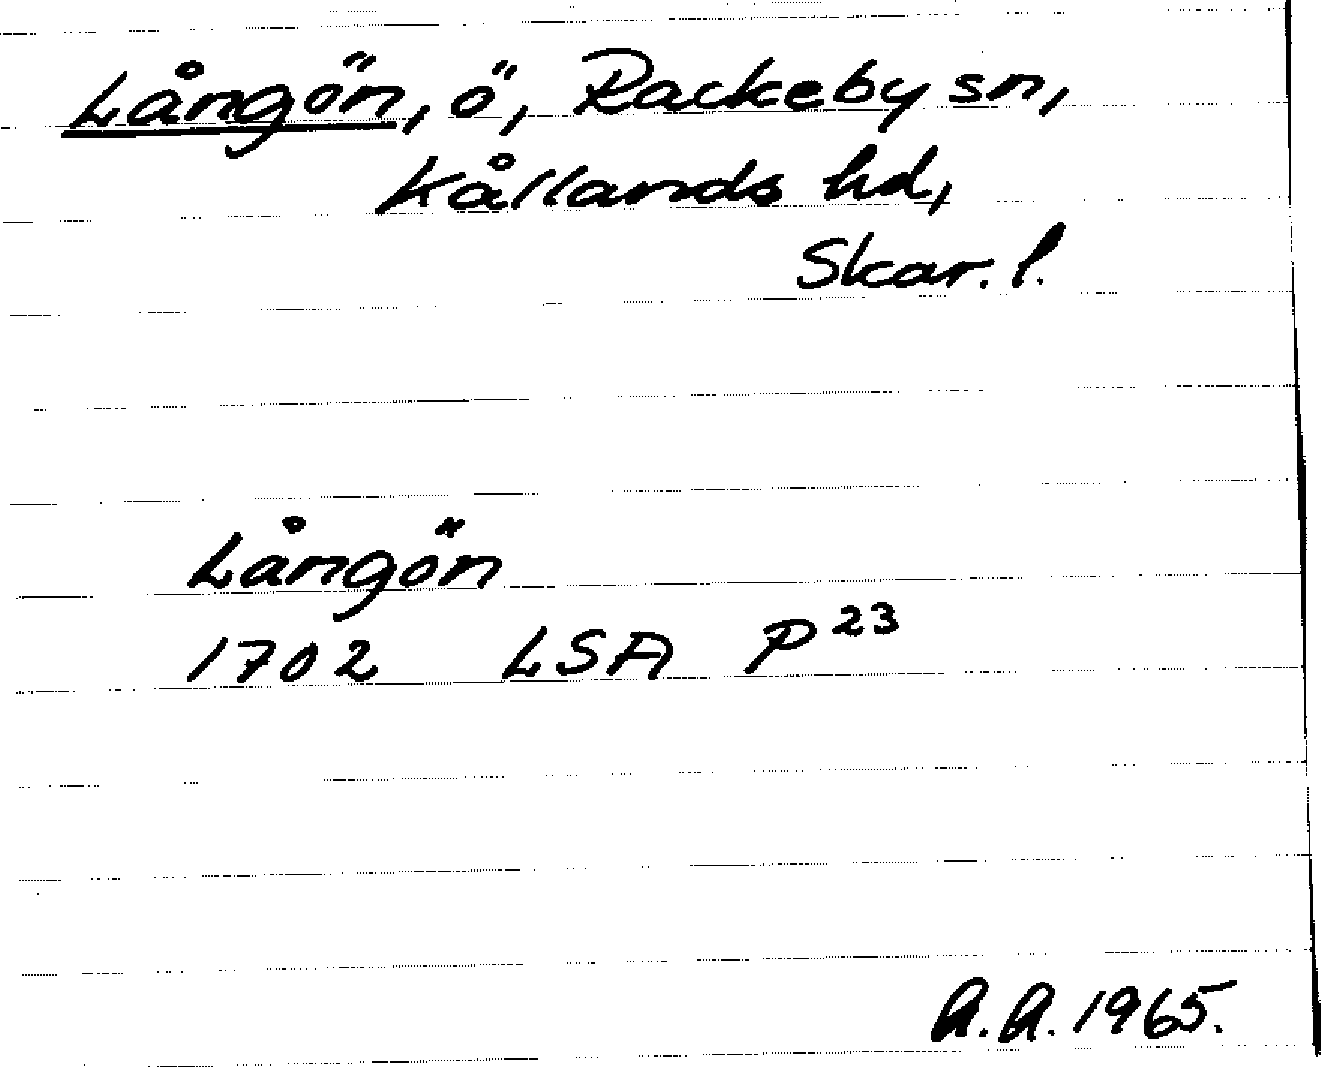 Långön, ö, Rackeby sn,
Kållands hd,
Skar. l.
Långön
1702 LSA P23
A.A. 1965.